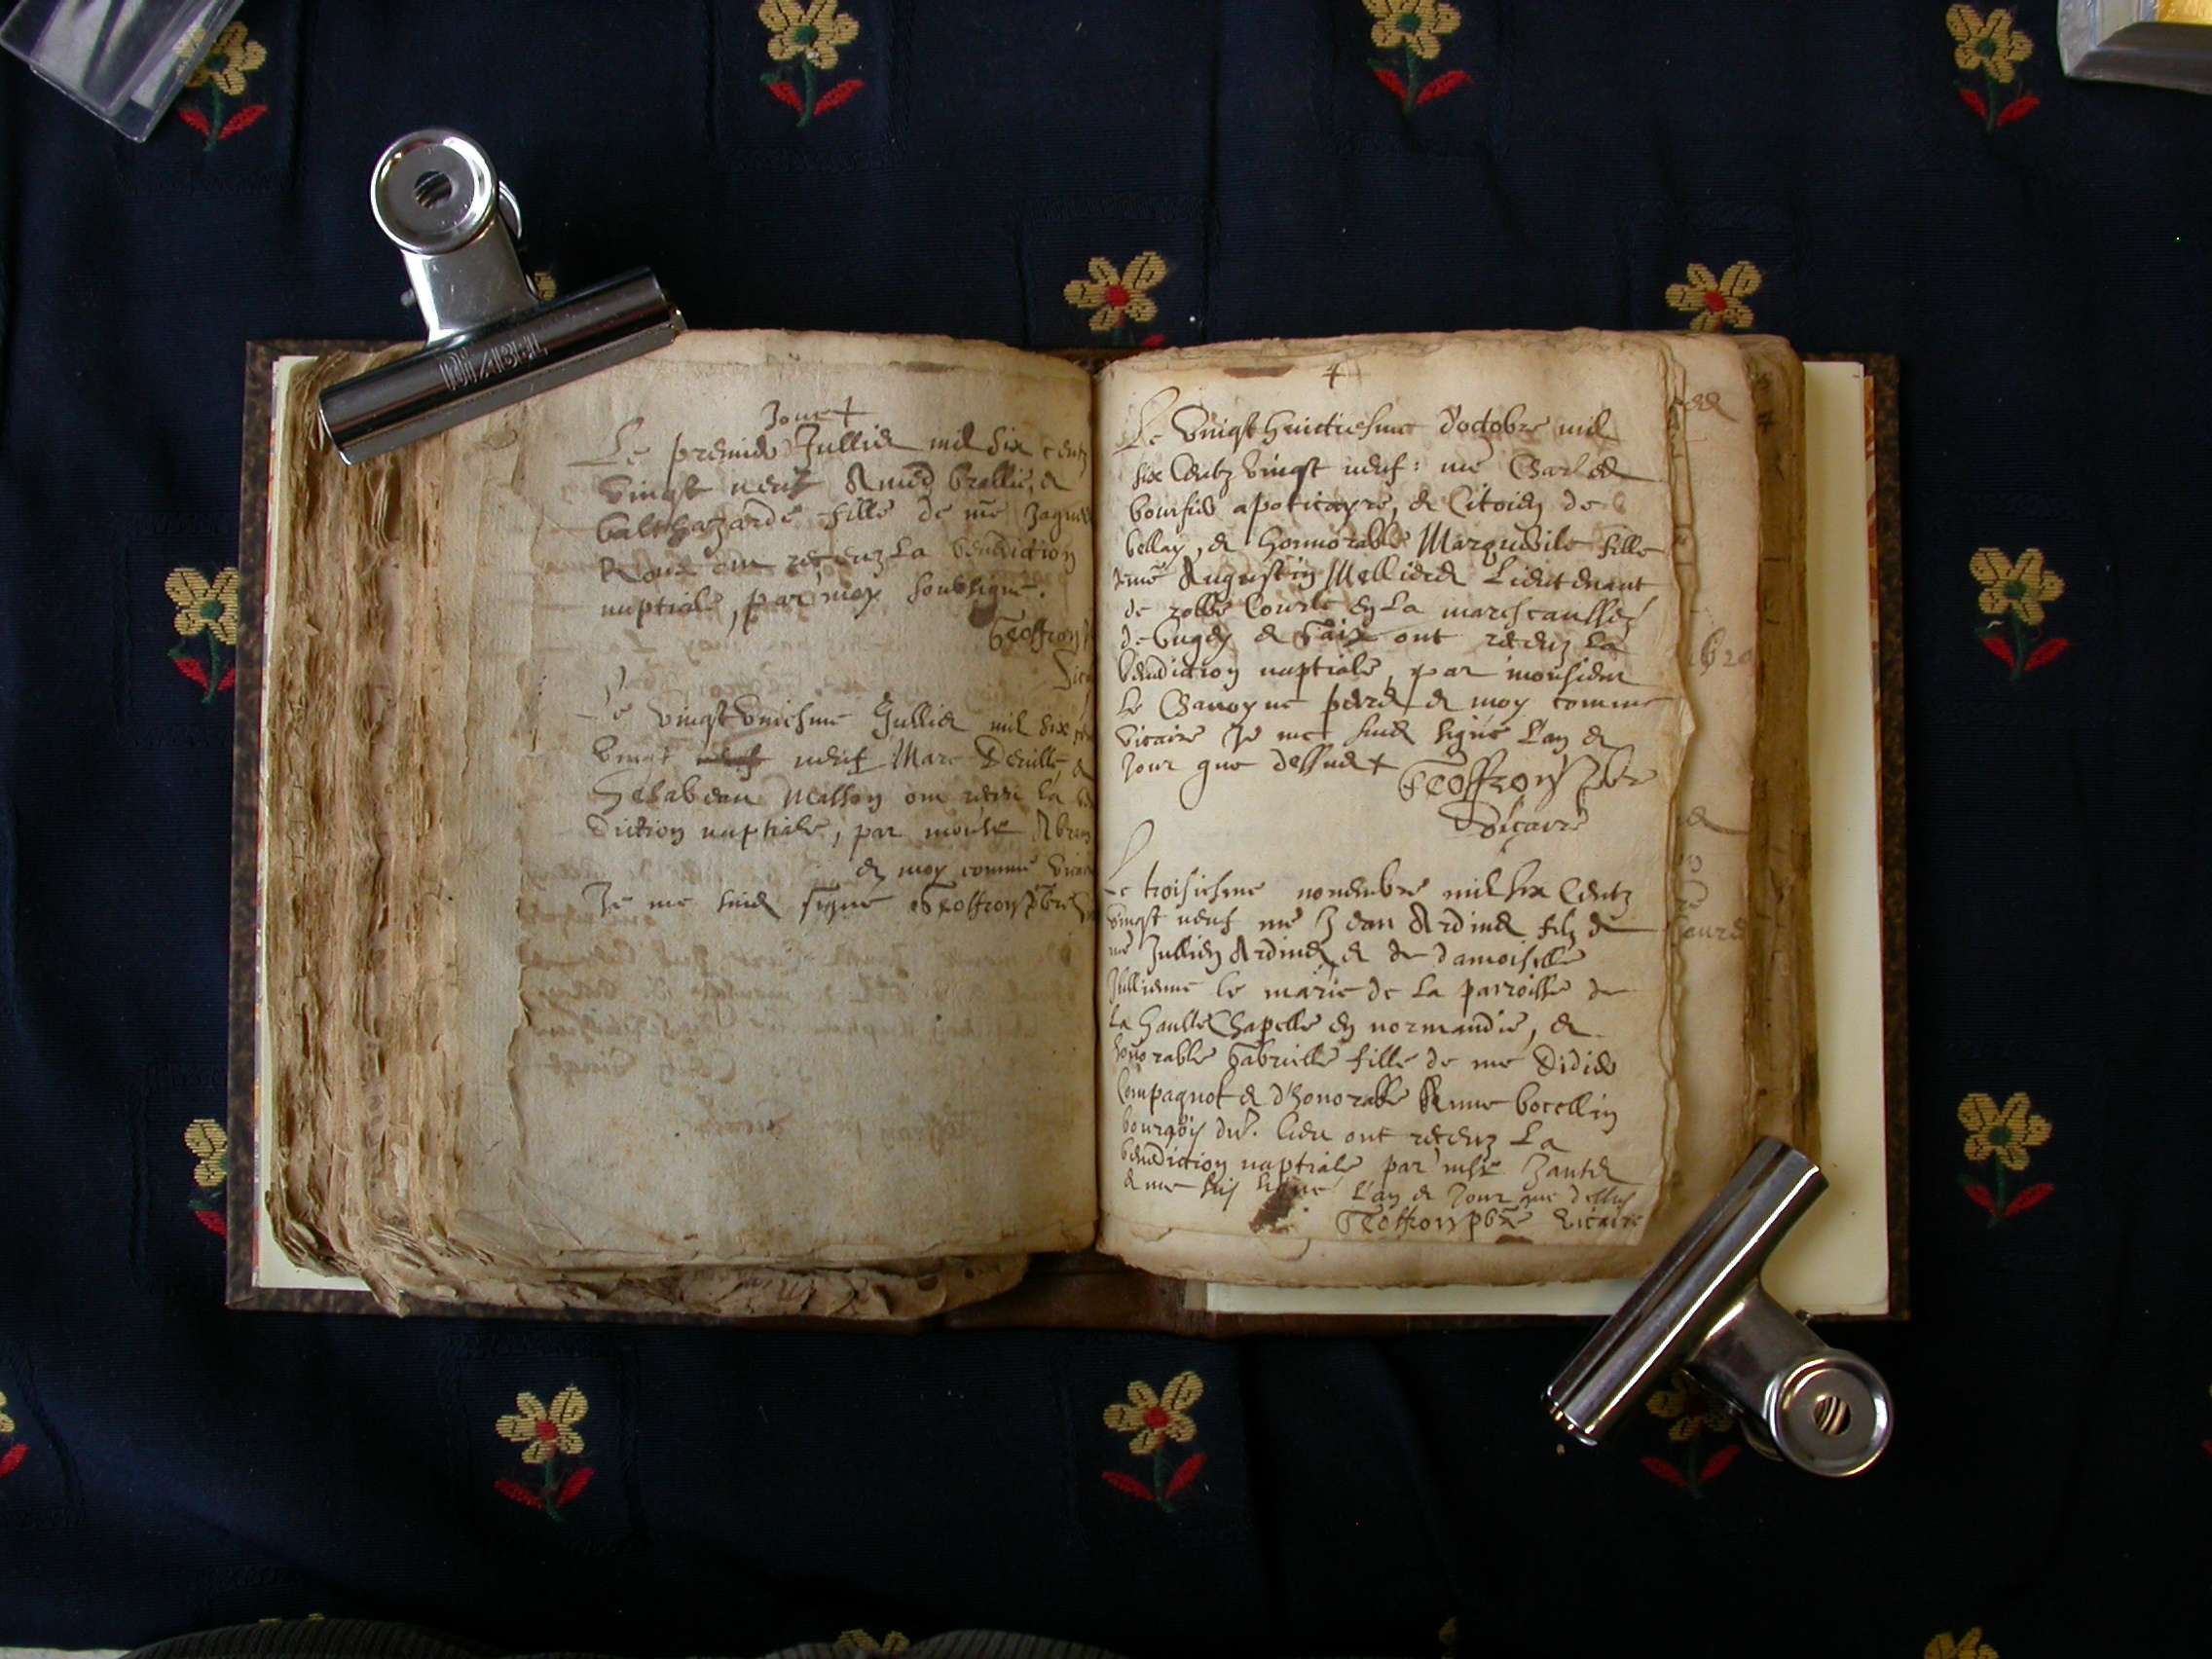 DIZABEL
Jour
Le premier Jullier mil six centz
vingt neuf Aimed brallier, &
balthazarde fille de me Jaques
Roux ont receuz La benediction
nuptiale, par moy soubsigné.
Geoffroy
Le vingt uniesme Jullier mil six
vingt neuf Marc Deville, &
Ysabeau Masson ont receu la
diction nuptiale, par
& moy comme
Je me suis signé Geoffroy pbre
Le vingt huictiesme d'octobre mil
six centz vingt neuf: me Charles
apoticayre, & Citoien de
bellay, & honnorable fille
de me Augustin Mellier Lieutenant
de robbe courte en La mareschaussée
de bugey & Gaix ont receuz La
benediction nuptiale, par monsieur
Le Chanoyne & moy comme
vicaire Je me suis signé L'an &
Jour que dessus Geoffroy pbre
vicaire
Le troisiesme novembre mil six Centz
vingt neuf me Jean Ardines filz de
me Jullien Ardines & de damoiselle
Jullienne le marie de La parroisse de
La Haulte Chapelle en normandie, &
honorable Gabrielle fille de me Didier
Compagnot & d'honorable Anne bocellin
bourgois dud. lieu ont receuz La
benediction nuptiale par
& me suis signé L'an & Jour que dessus
Geoffroy pbre vicaire